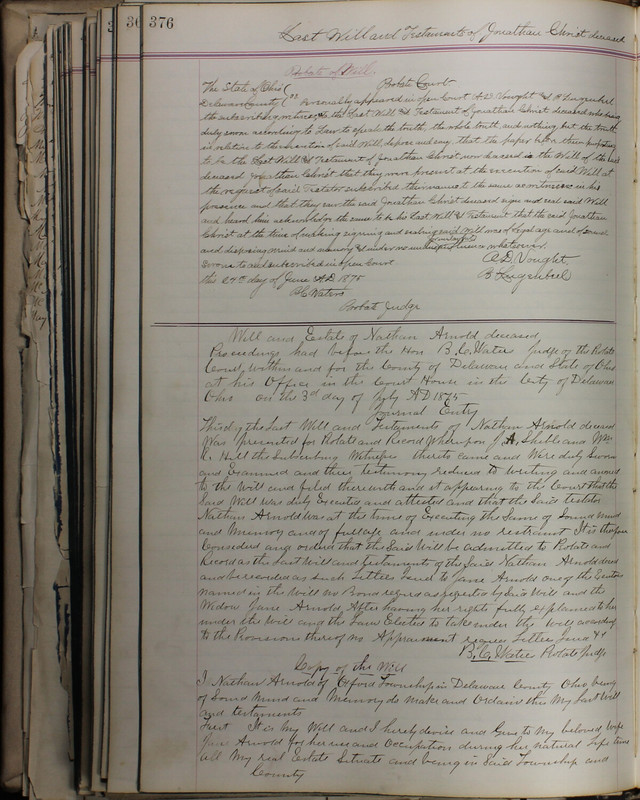 36 376
Last Will and Testament of Jonathan Christ deceased
Probate of Will
The State of Ohio Probate Court
Delaware County ss Personally appeared in open Court A.D. Vought & B. Lugenbeel
the subscribing witnesses to the Last Will & Testament of Jonathan Christ deceased who being
duly sworn according to Law to speak the truth, the whole truth, and nothing but the truth
in relation to the execution of said Will, depose and say, that the paper before them purporting
to be the Last Will & Testament of Jonathan Christ now deceased is the Will of the said
deceased Jonathan Christ that they were present at the execution of said Will at
the request of said Testator subscribed their names to the same as witnesses in his
presence and that they saw the said Jonathan Christ deceased sign and seal said Will
and heard him acknowledge the same to be his Last Will & Testament that the said Jonathan
Christ at the time of making signing and sealing said will was of legal age and of sound
and disposing mind and memory & under no whatsoever
Sworn to and subscribed in open Court A.D. Vought
this 24th day of June A.D. 1875 B. Lugenbeel
B.C. Waters
Probate Judge
Will and Estate of Nathan Arnold deceased
Proceedings had before the Hon B.C. Waters Judge of the Probate
Court, within and for the County of Delaware and State of Ohio
at his Office in the Court House in the City of Delaware
Ohio on the 3d day of July A D 1875
Journal Entry
This day the Last Will and Testament of Nathan Arnold deceased
Was presented for Probate and Record Whereupon J. A. and Wm
R. Hull the Subscribing Witnesses thereto came and Were duly Sworn
and Examined and their testimony reduced to Writing and annexed
to the Will and filed therewith and it appearing to the Court that the
Said Will was duly Executed and attested and that the Said testator
Nathan Arnold was at the time of Executing the Same of Sound mind
and Memory and of full age and under no restraint It is therefore
Considered and ordered that the Said Will be admitted to Probate and
Record as the Last Will and testament of the Said Nathan Arnold decd
and be recorded as such Letters Issued to Jane Arnold one of the Executors
named in the will no Bond required as requested by Said Will and the
Widow Jane Arnold After having her rights fully Explained to her
under the Will and the Law Elected to take under the Will according
to the Provisions thereof no Appraisment required Letters Issued
B.C. Waters Probate Judge
Copy of the Will
I Nathan Arnold of Oxford Township in Delaware County Ohio being
of Sound Mind and Memory do Make and Ordain this My Last Will
and testaments
First It is my Will and I hereby devise and Give to My beloved Wife
Jane Arnold for her use and Occupation during her natural Life time
all My real Estate Situate and being in Said Township and
County